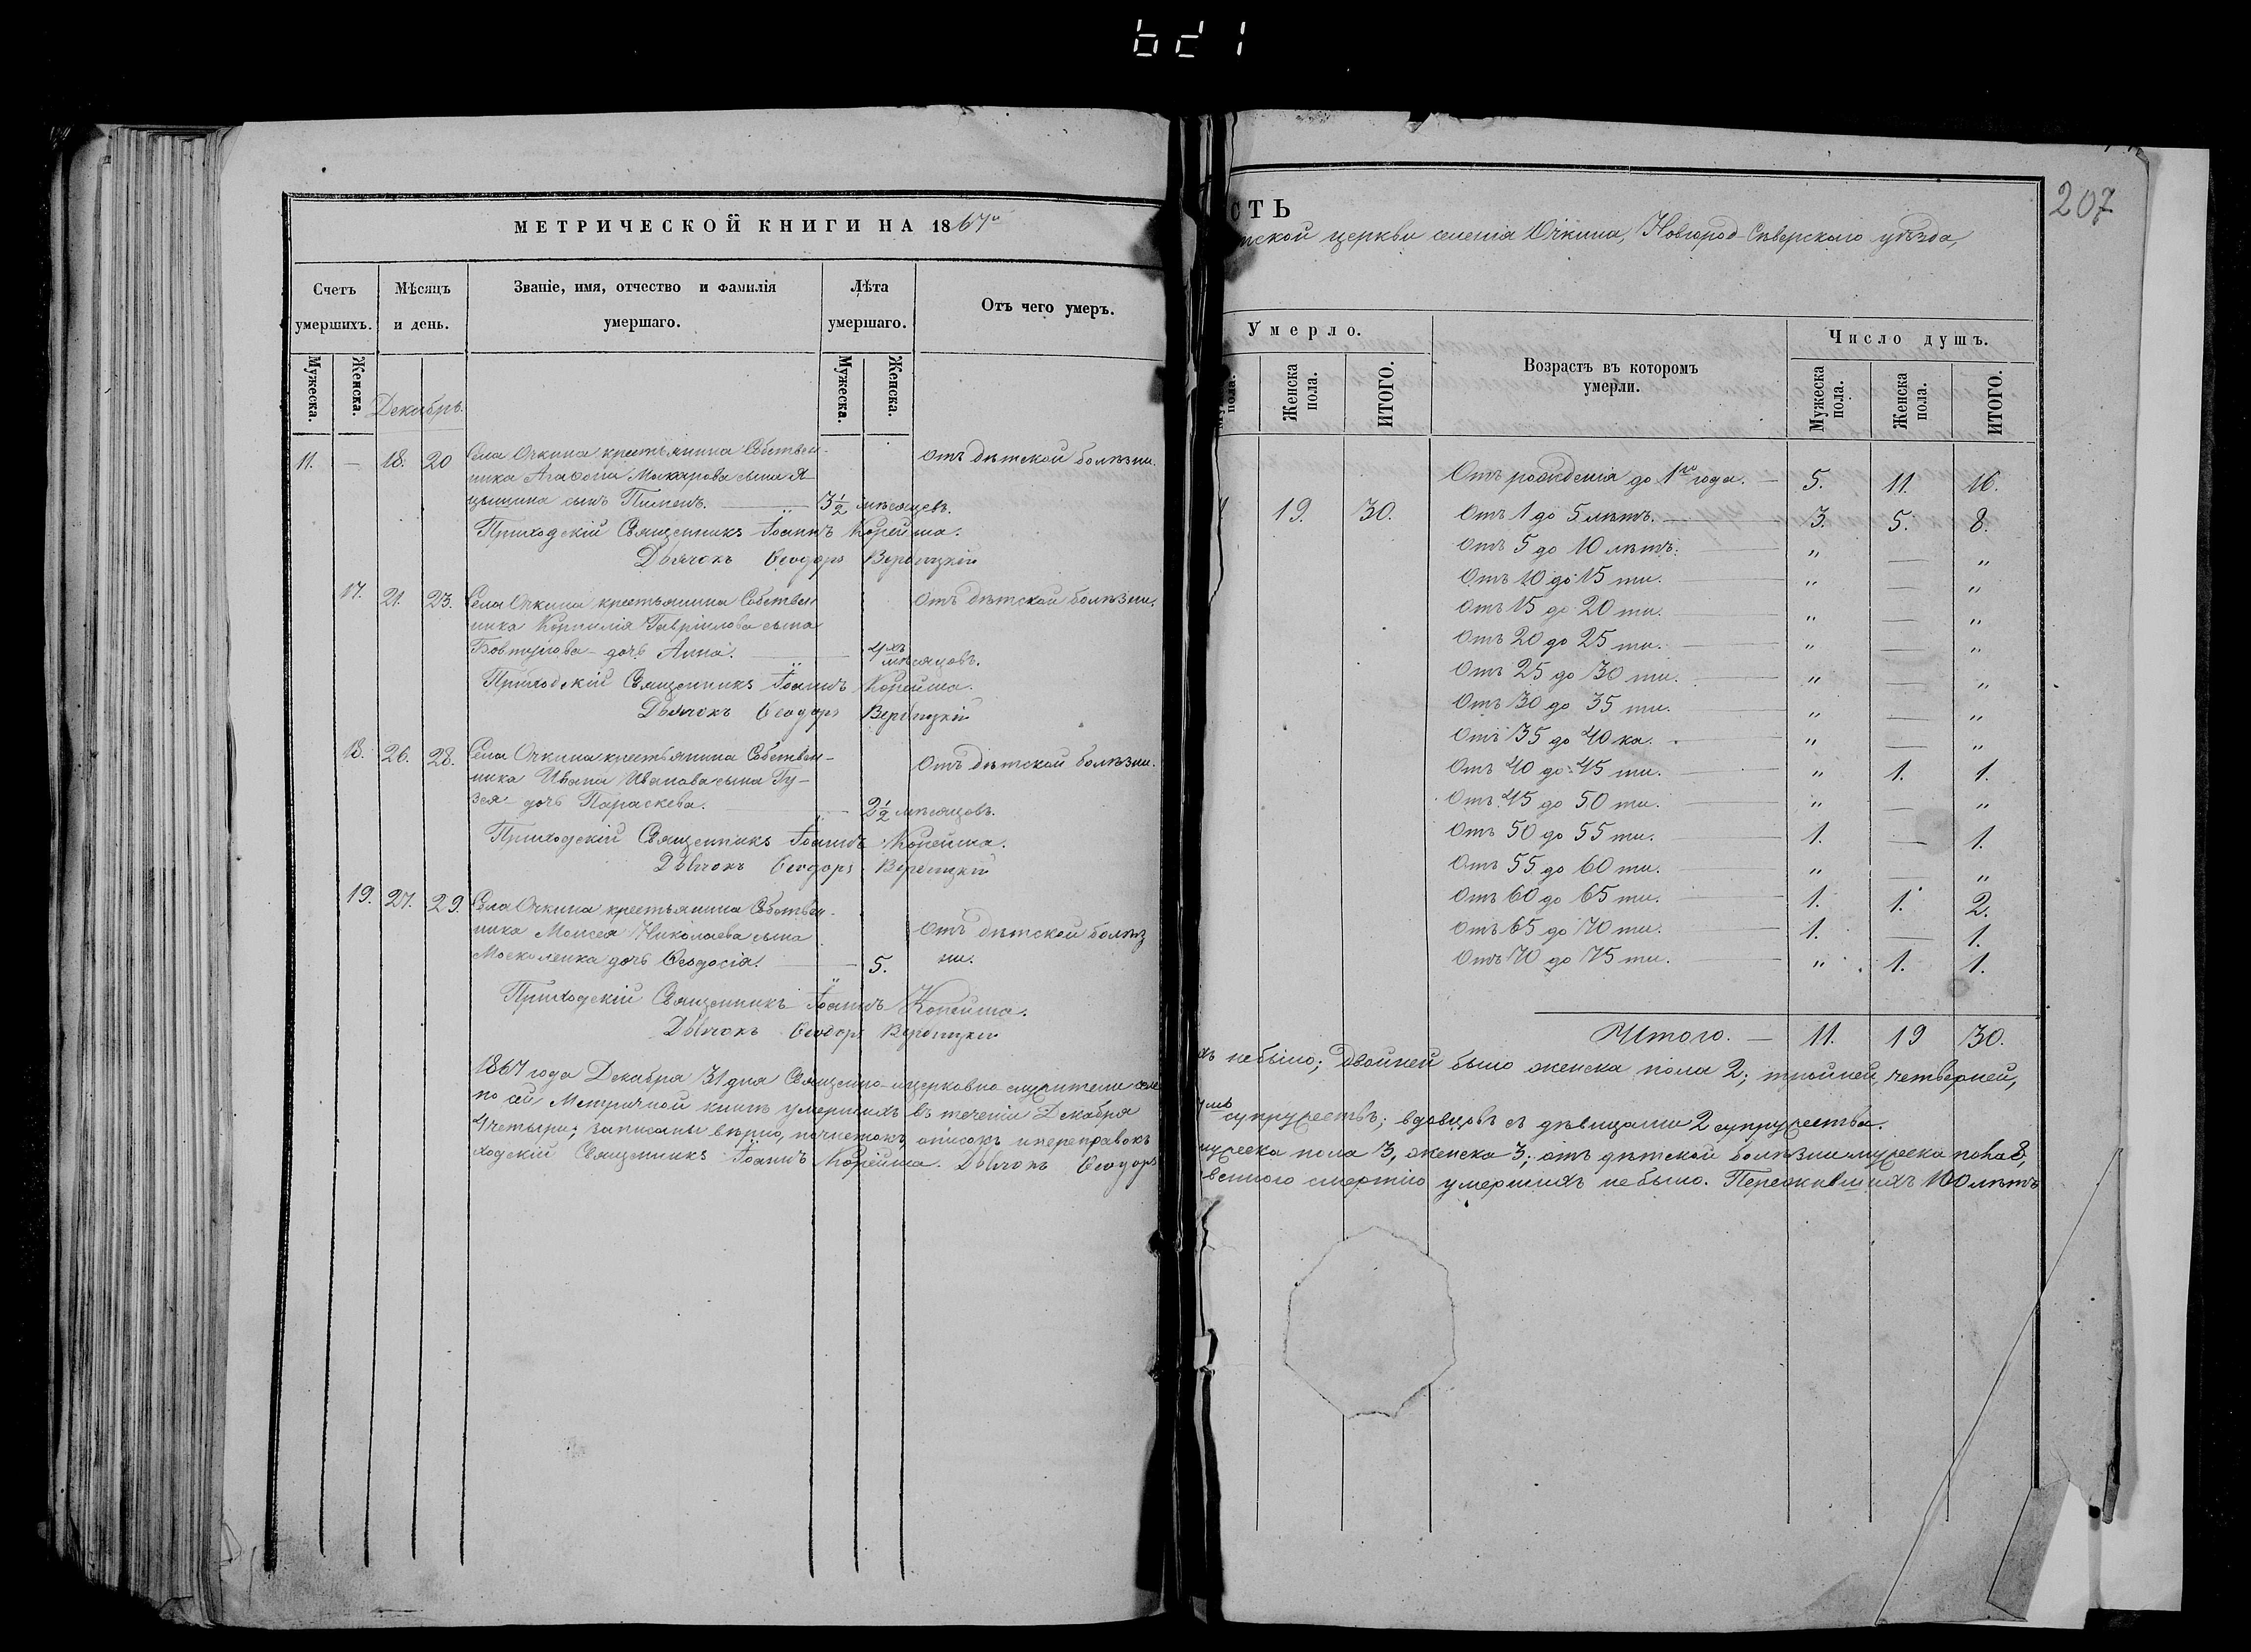 МЕТРИЧЕСКОЙ КНИГИ НА 1867й
Счетъ умершихъ.
Мѣсяцъ и день.
Званіе, имя, отчество и фамилія умершаго.
Лѣта умершаго.
Отъ чего умеръ.
Мужеска.
Женска.
Мужеска.
Женска.
Декабрь.
11. — 18. 20 Села Очкина крестьянина Собствен- Отъ дѣтской болѣзни.
ника Агафона Макарова сына Я-
цынина сынъ Пименъ. 3 1/2 мѣсяцевъ.
Приходскій Священникъ Іоаннъ Корейша.
Дьячокъ Ѳеодоръ Вербицкій
17. 21. 23. Села Очкина крестьянина Собствен Отъ дѣтской болѣзни.
ника Корнилія Гавріилова сына
дочь Анна. 4хъ мѣсяцовъ.
Приходскій Священникъ Іоаннъ Корейша.
Дьячокъ Ѳеодоръ Вербицкій
18. 26. 28. Села Очкина крестьянина Собствен- Отъ дѣтской болѣзни.
ника Ивана Иванова сына Гу-
зея - дочь Параскева. 2 1/2 мѣсяцовъ.
Приходскій Священникъ Іоаннъ Корейша.
Дьячокъ Ѳеодоръ Вербицкій
19. 27. 29. Села Очкина крестьянина Собствен-
ника Моисея Николаева сына Отъ дѣтской болѣз
Москаленка дочь Ѳеодосія. — 5. ни.
Приходскій Священникъ Іоаннъ Корейша.
Дьячокъ Ѳеодоръ Вербицкій
1867 года Декабря 31 дня Священно-церковно служители
по сей Метричной книгѣ умершихъ въ теченіи Декабря
4 четыри; записаны вѣрно, почистокъ, описокъ и переправокъ
ходскій Священникъ Іоаннъ Корейша. Дьячокъ Ѳеодоръ
207
СТЬ
церкви селенія Очкина, Новгород-Сѣверскаго уѣзда,
Умерло.
Возрастъ въ которомъ умерли.
Число душъ.
пола.
Женска пола.
ИТОГО.
Мужеска пола.
Женска пола.
ИТОГО.
Отъ рожденія до 1го года. — 5. 11. 16.
19. 30. Отъ 1 до 5 лѣтъ. — 3. 5. 8.
Отъ 5 до 10 лѣтъ. — „ — „
Отъ 10 до 15 ти. — „ — „
Отъ 15 до 20 ти. — „ — „
Отъ 20 до 25 ти. — „ — „
Отъ 25 до 30 ти. — „ — „
Отъ 30 до 35 ти. — „ — „
Отъ 35 до 40 ка. — „ — „
Отъ 40 до 45 ти. — „ 1. 1.
Отъ 45 до 50 ти. — „ — „
Отъ 50 до 55 ти. — 1. — 1.
Отъ 55 до 60 ти. — „ — „
Отъ 60 до 65 ти. — 1. 1. 2.
Отъ 65 до 70 ти. — 1. — 1.
Отъ 70 до 75 ти. — „ 1. 1.
Итого. — 11. 19 30.
хъ небыло; двойней было женска пола 2; тройней, четверней,
супружествъ; вдовцовъ съ дѣвицами 2 супружества.
мужеска пола 3, женска 3; отъ дѣтской болѣзни мужеска пола 8,
смертію умершихъ небыло. Пережившихъ 100 лѣтъ